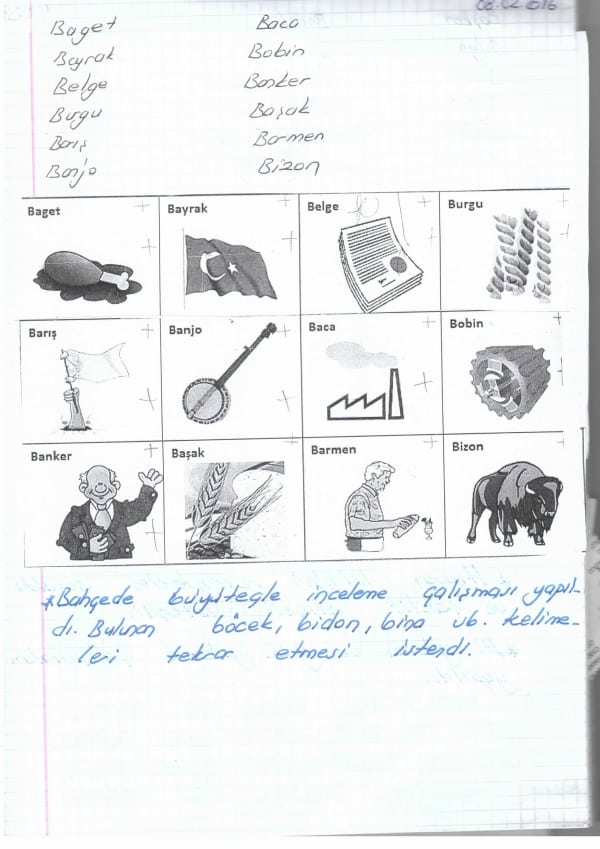 08.02.2016
Baget Baca
Bayrak Bobin
Belge Banker
Burgu Başak
Barış Barmen
Banjo Bizon
Baget Bayrak Belge Burgu
Barış Banjo Baca Bobin
Banker Başak Barmen Bizon
*Bahçede büyüteçle inceleme çalışması yapıl-
dı. Bulunan böcek, bidon, bina vb. kelime-
leri tekrar etmesi istendi.